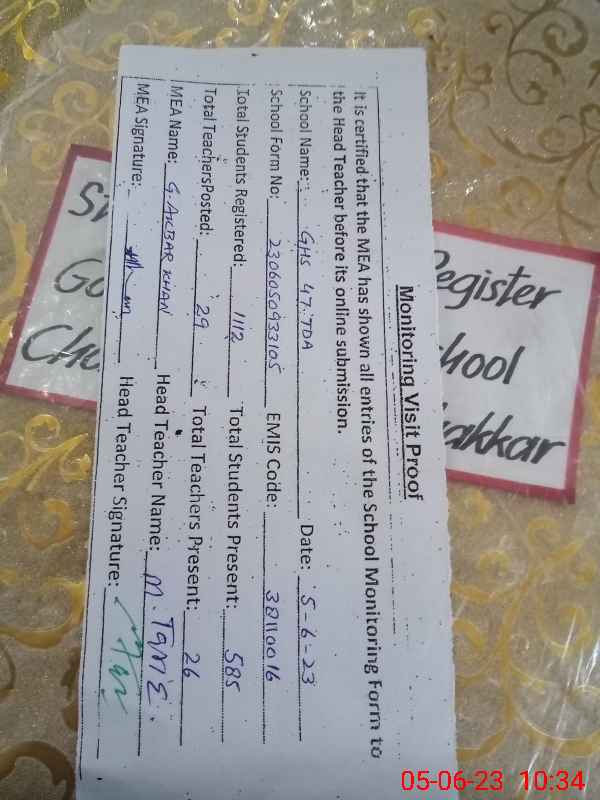 Monitoring Visit Proof
It is certified that the MEA has shown all entries of the School Monitoring Form to
the Head Teacher before its online submission.
School Name: GHS 47.TDA Date: 5-6-23
School Form No: 2306050933105 EMIS Code: 38110016
Total Students Registered: 1112 Total Students Present: 585
Total TeachersPosted: 29 Total Teachers Present: 26
MEA Name: G. AKBAR KHAN Head Teacher Name: M.
MEA Signature: Head Teacher Signature:
Register
05-06-23 10:34